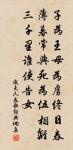 子為王母為虜終日舂
薄暮常與死為伍相離
三千里誰使告女
戚夫人舂歌